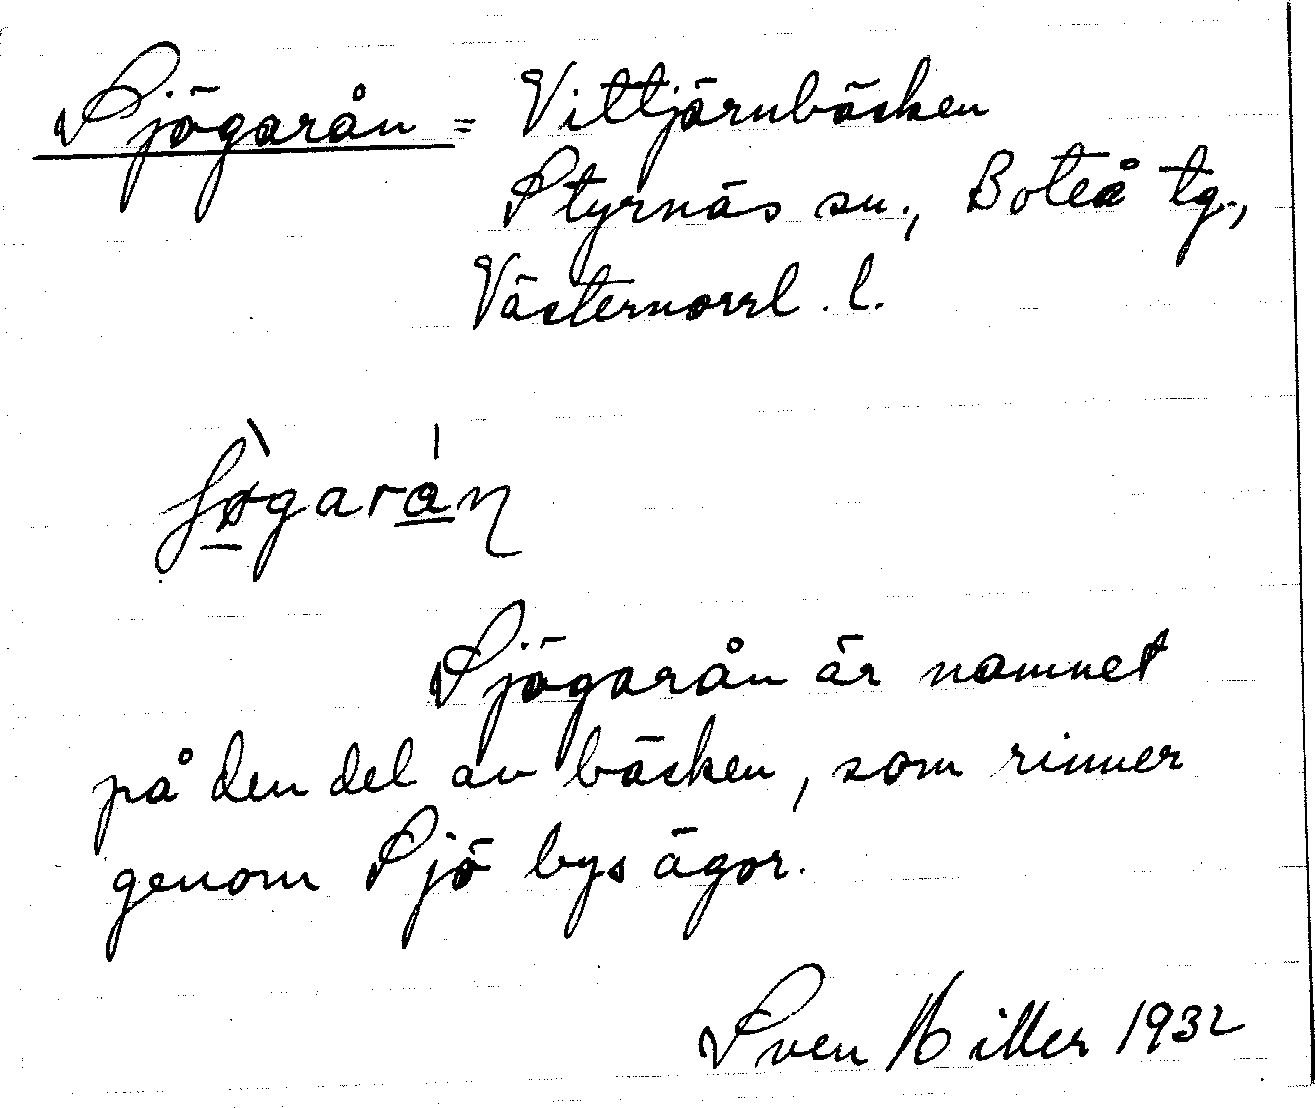 Sjögarån = Vittjärnbäcken
Styrnäs sn., Boteå tg.,
Västernorrl. l.
Sjögarån är namnet
på den del av bäcken, som rinner
genom Sjö bys ägor.
Sven Hiller 1932